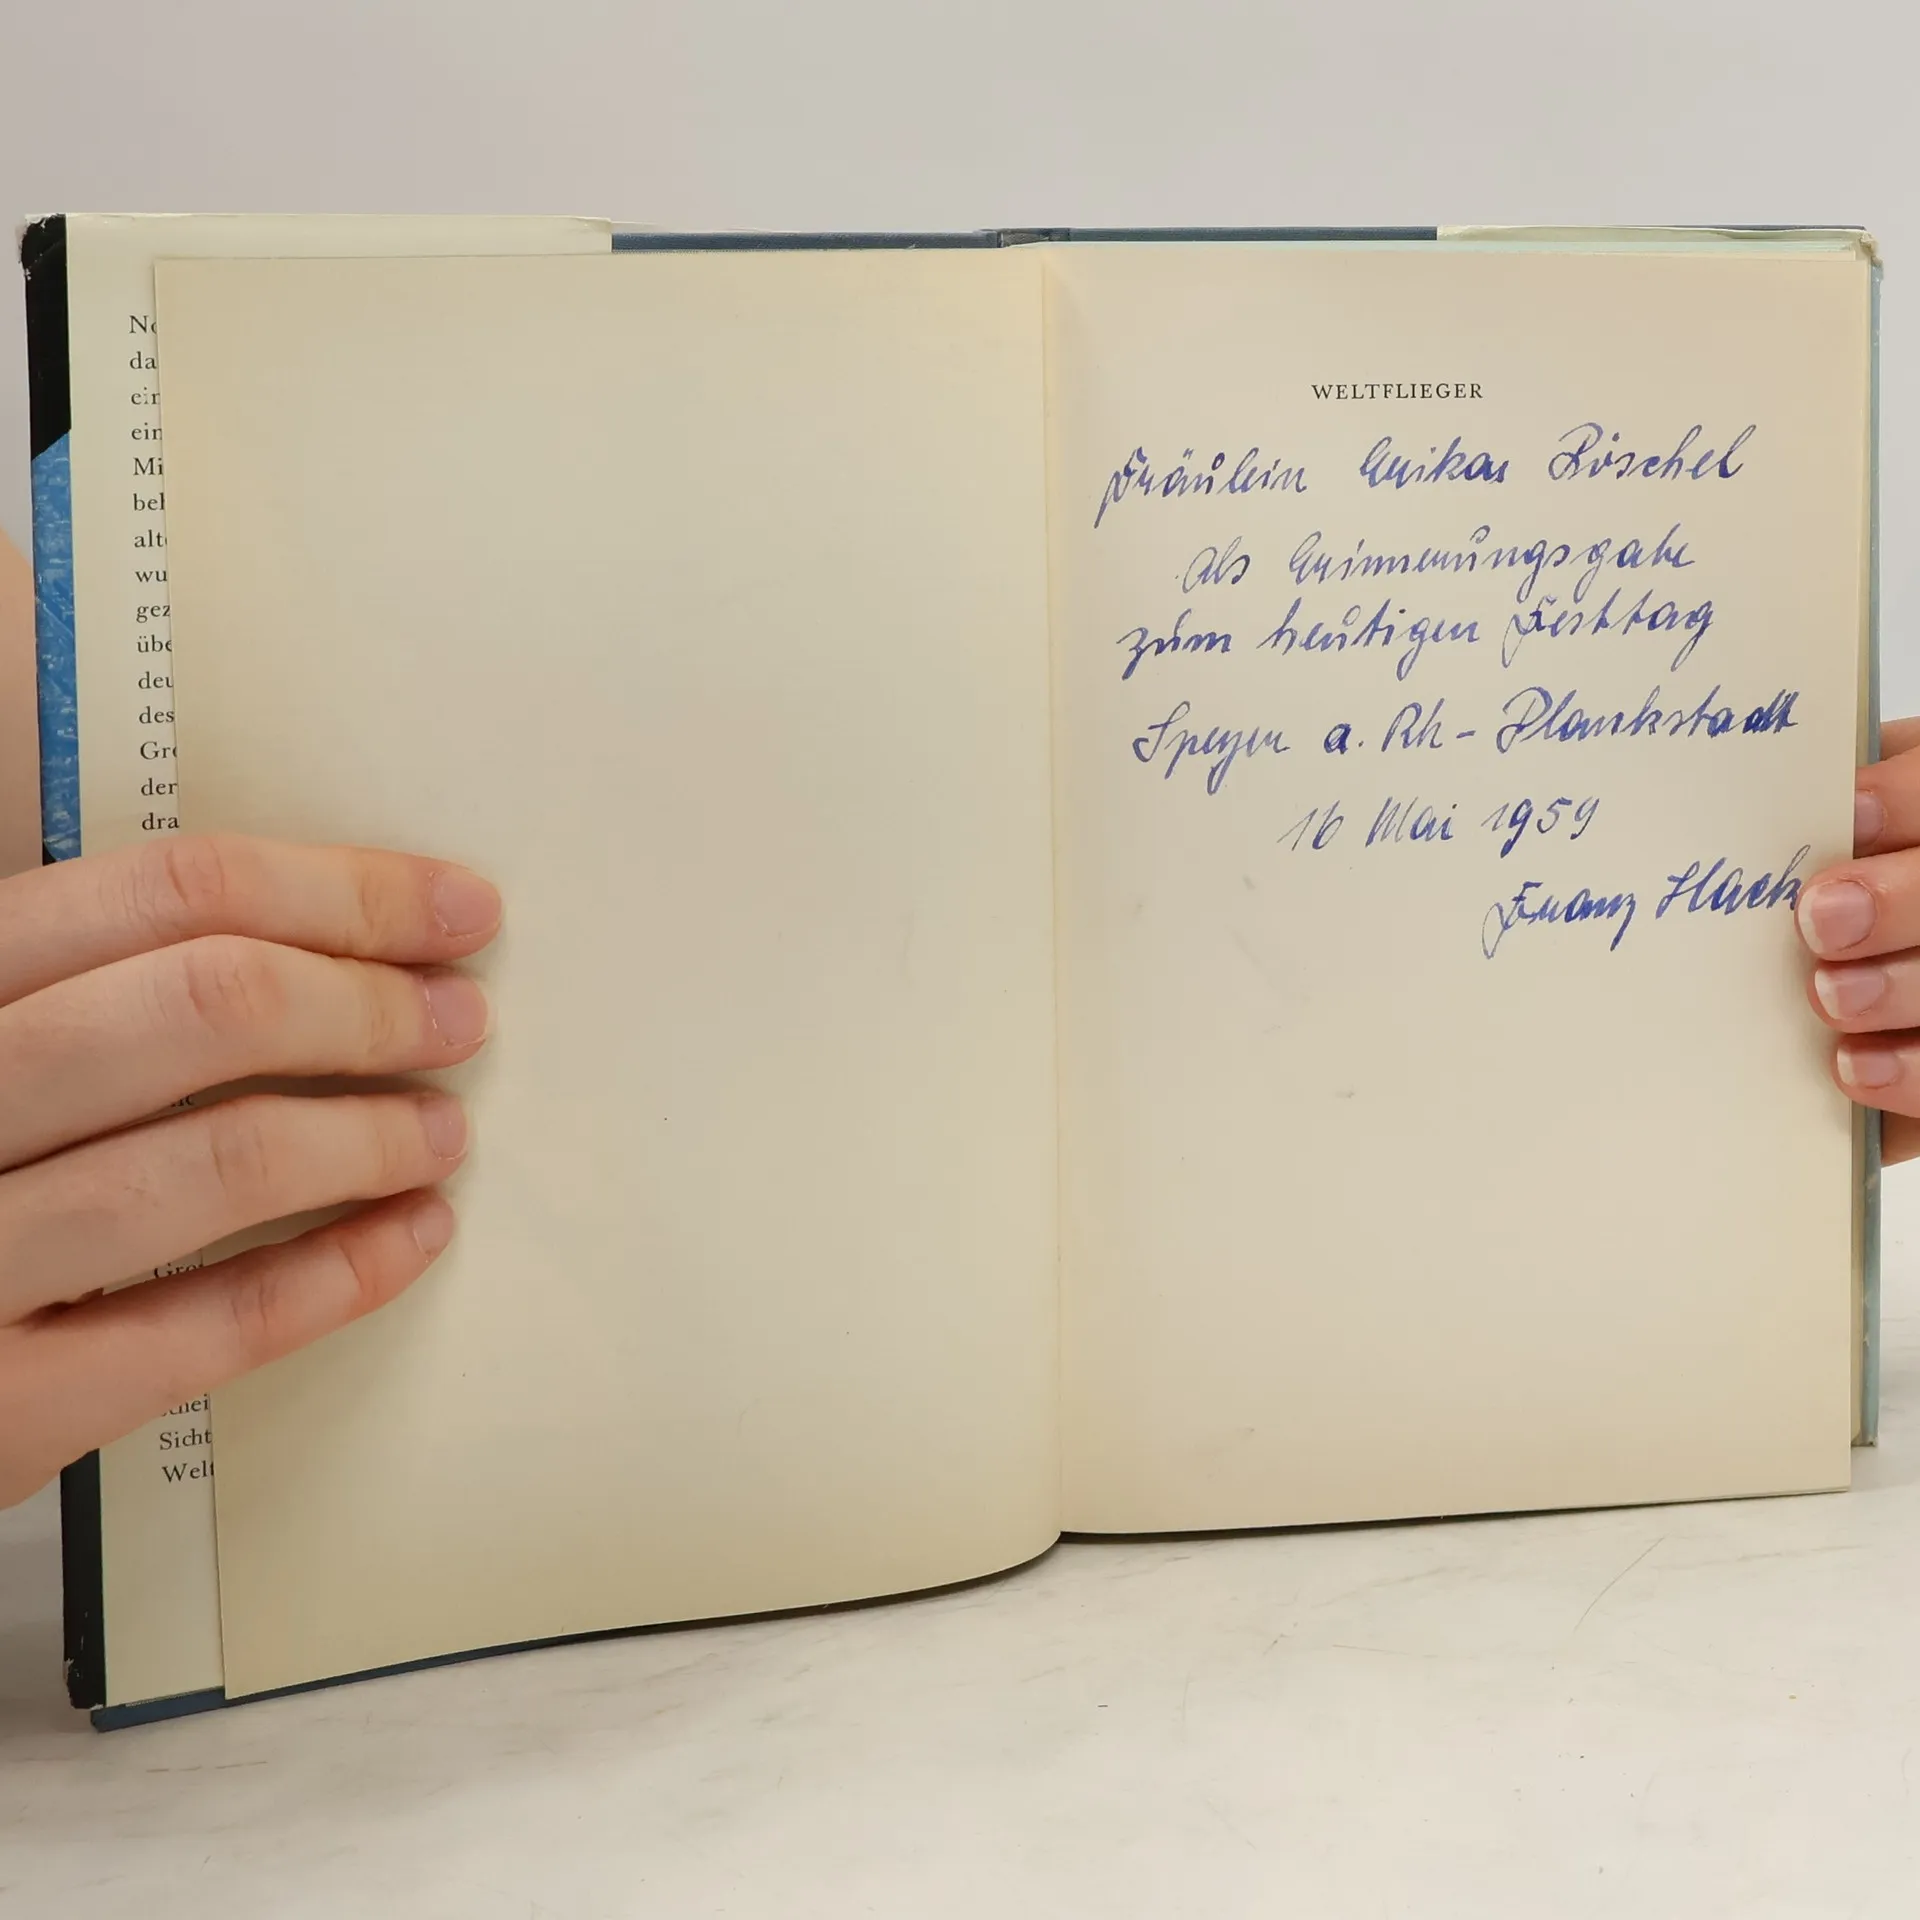 No
da
ein
ein
Mi
beh
alt
wu
gez
übe
deu
des
Gro
der
dra
Gro
chei
Sicht
Welt
WELTFLIEGER
Fräulein Erika Röschel
Als Erinnerungsgabe
zum heutigen Festtag
Speyer a. Rh - Plankstadt
16 Mai 1959
Franz Hack